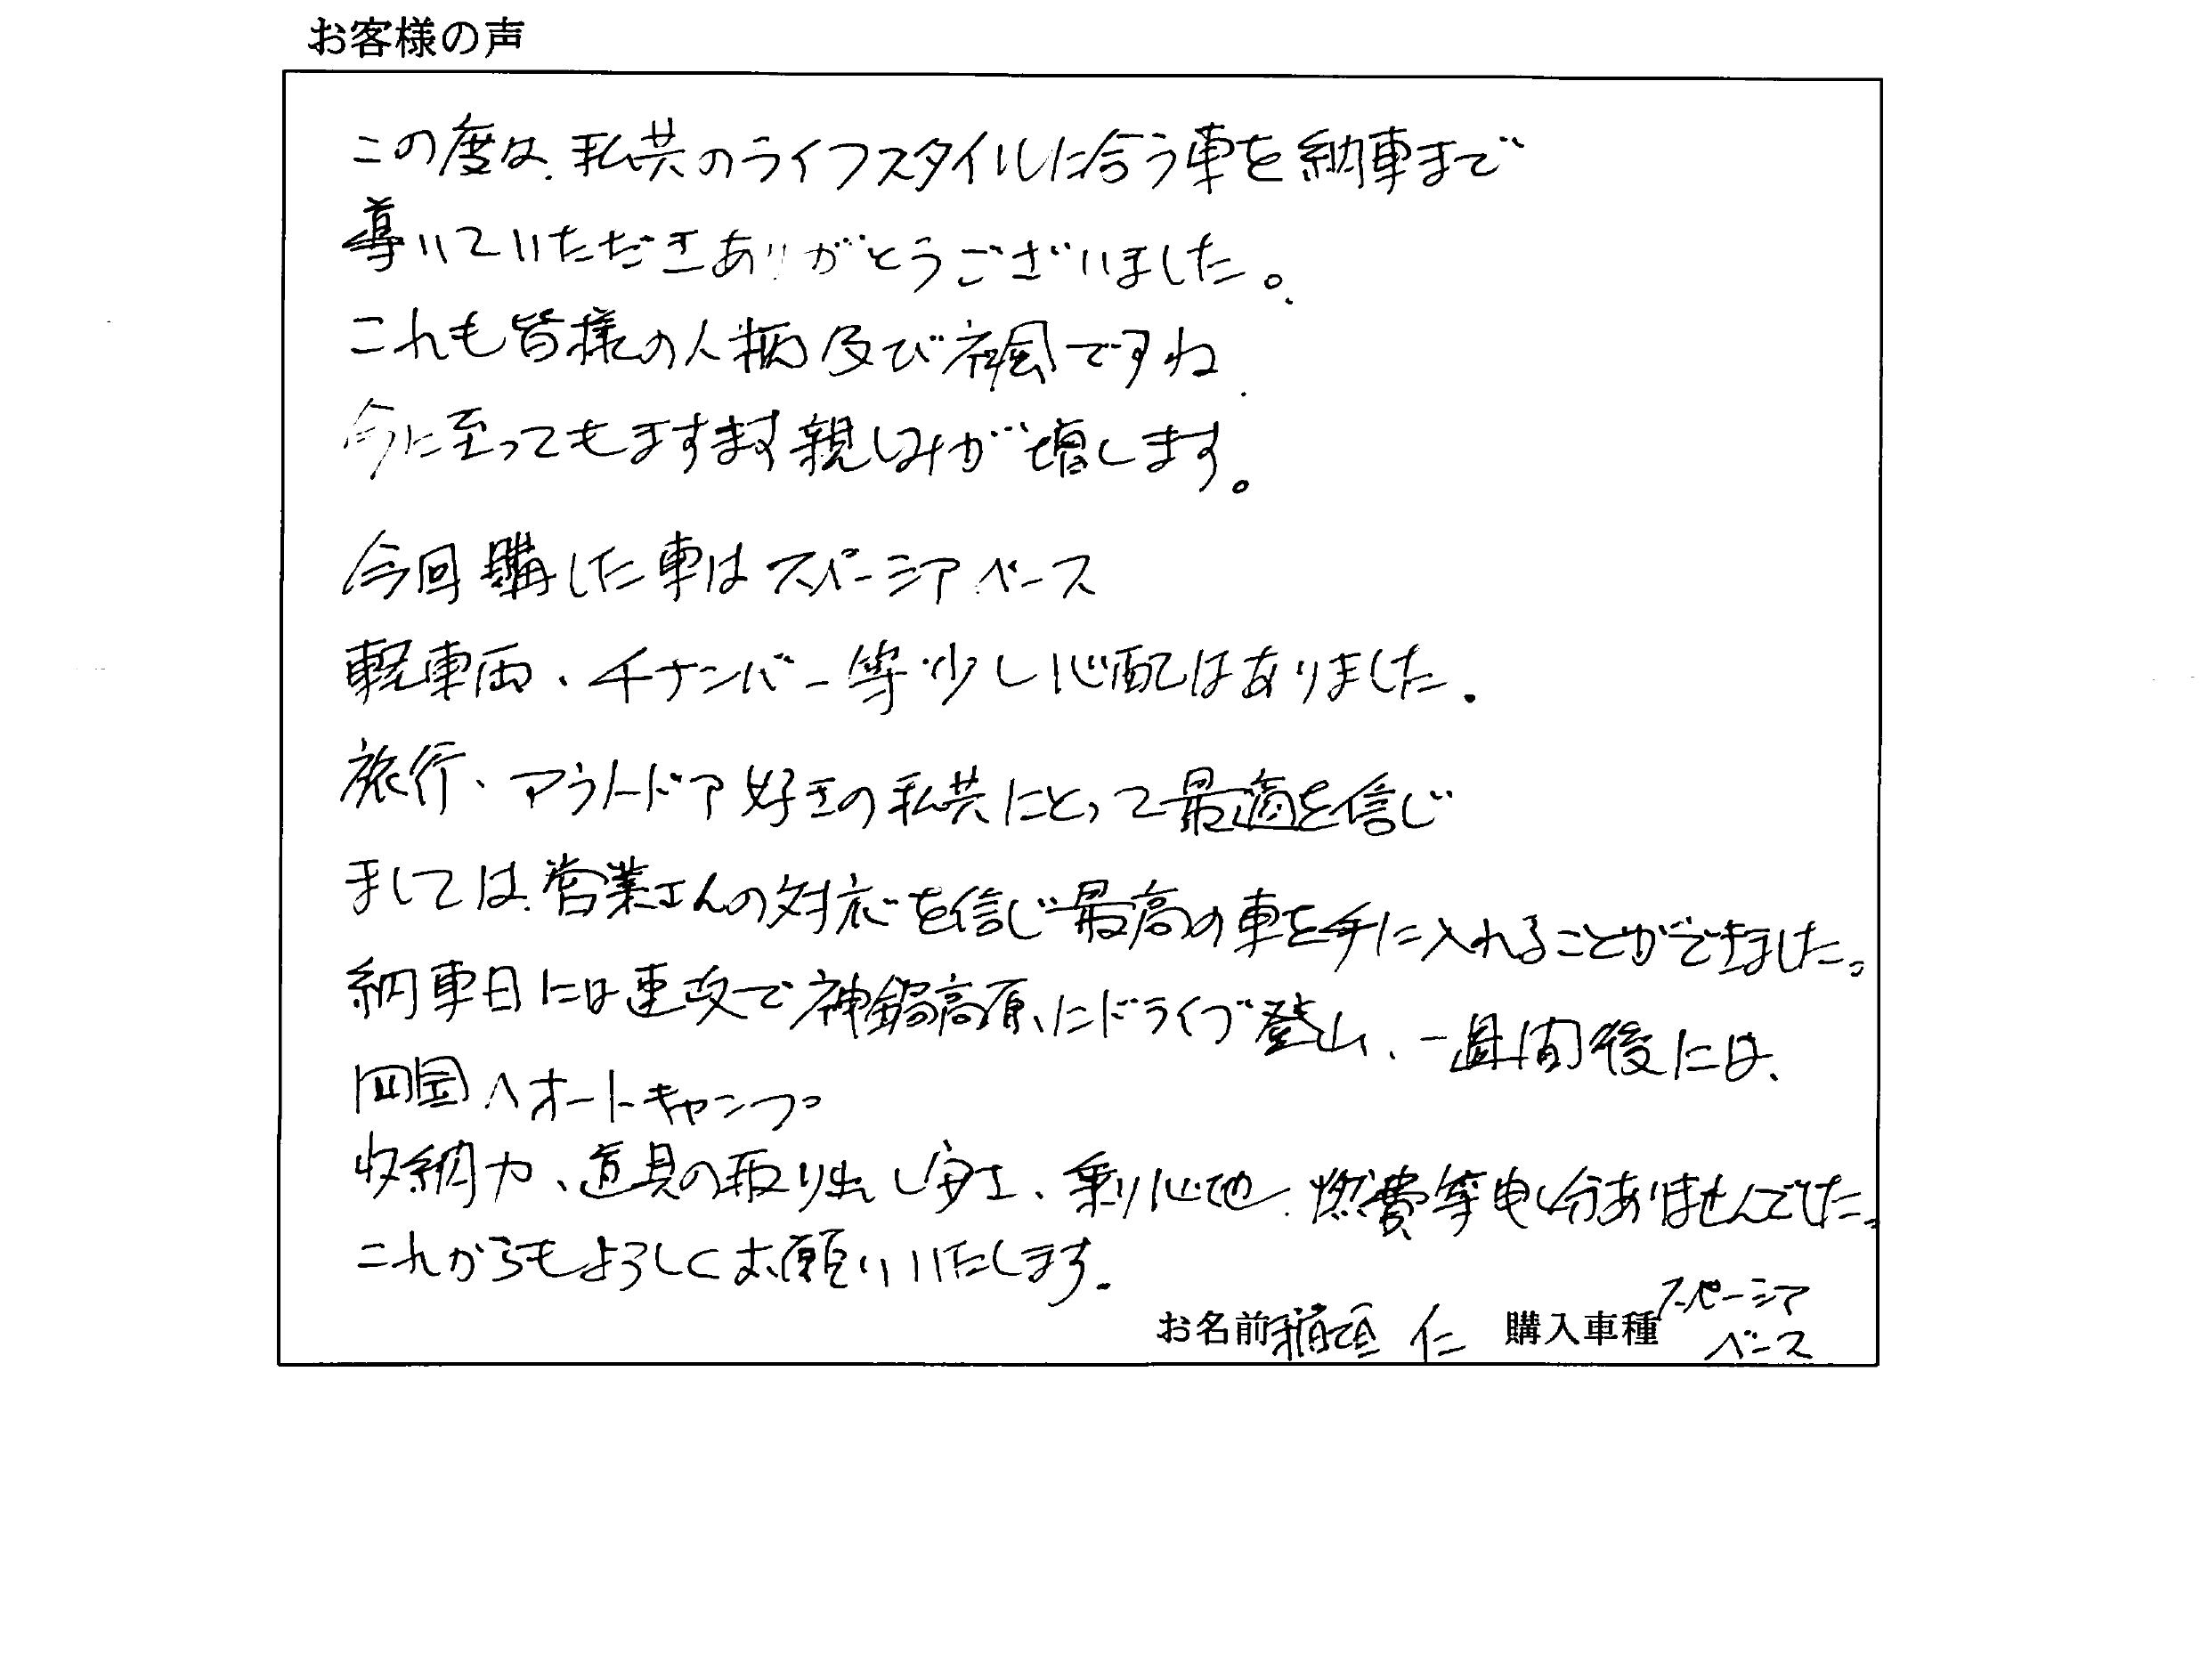 お客様の声
この度は、私共のライフスタイルに合う車を納車まで
導いていただきありがとうございました。
これも皆様の人柄及び社風ですね、
今に至ってもますます親しみが増します。
今回購した車はスペーシアベース
軽車両、4ナンバー等少し心配はありました。
旅行、アウトドア好きの私共にとって最適を信じ
ましては、営業さんの対応を信じ最高の車を手に入れることができました。
納車日には速攻で神鍋高原、にドライブ登山、一週間後には、
四国へオートキャンプ
収納力、道具の取り出し安さ、乗り心地、燃費等申し分ありませんでした。
これからもよろしくお願いいたします。
お名前 稲垣 仁 購入車種 スペーシア
ベース